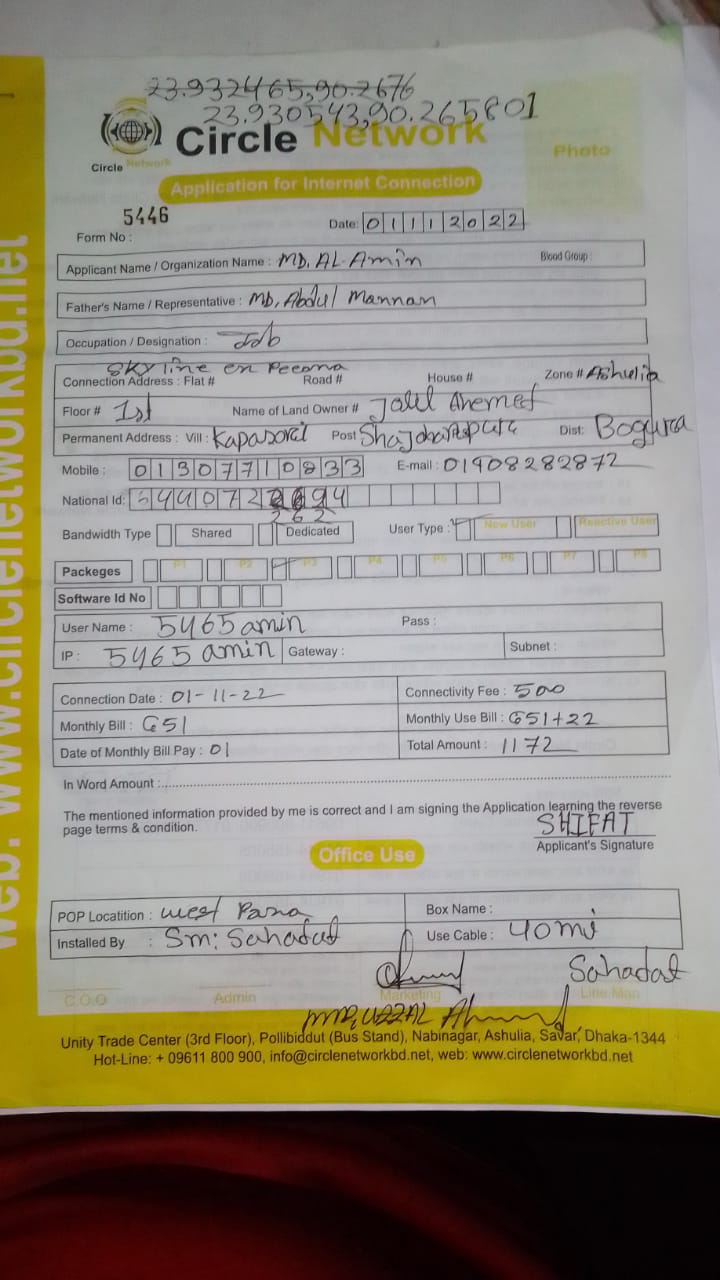 23.932465,90.2676
23.930543,90.265801
Circle Network
Circle Network
Photo
Application for Internet Connection
5446
Form No :
Date: 01112022
Applicant Name / Organization Name : MD. AL-Amin Blood Group :
Father's Name / Representative : Md, Abdul Mannan
Occupation / Designation : Job
Sky line en
Connection Address : Flat # Road # House # Zone # Ashulia
Floor # 1st Name of Land Owner # Jalil Ahemed
Permanent Address : Vill : Post Dist: Bogura
Mobile : 01307710833 E-mail : 01908282872
National Id:
262
Bandwidth Type Shared Dedicated User Type : New User Reactive User
Packeges P1 P2 P3 P4 P5 P6 P7 P8
Software Id No
User Name : 5465 amin Pass :
IP : 5465 amin Gateway : Subnet :
Connection Date : 01-11-22 Connectivity Fee : 500
Monthly Bill : 651 Monthly Use Bill : 651+22
Date of Monthly Bill Pay : 01 Total Amount : 1172
In Word Amount :
The mentioned information provided by me is correct and I am signing the Application learning the reverse
page terms & condition.
SHIFAT
Applicant's Signature
Office Use
POP Locatition : west Para Box Name :
Installed By : Sm: Sahadat Use Cable : 40mi
Sahadat
C.O.O Admin Marketing Line Man
Unity Trade Center (3rd Floor), Pollibiddut (Bus Stand), Nabinagar, Ashulia, Savar, Dhaka-1344
Hot-Line: + 09611 800 900, info@circlenetworkbd.net, web: www.circlenetworkbd.net
web: www.circlenetworkbd.net